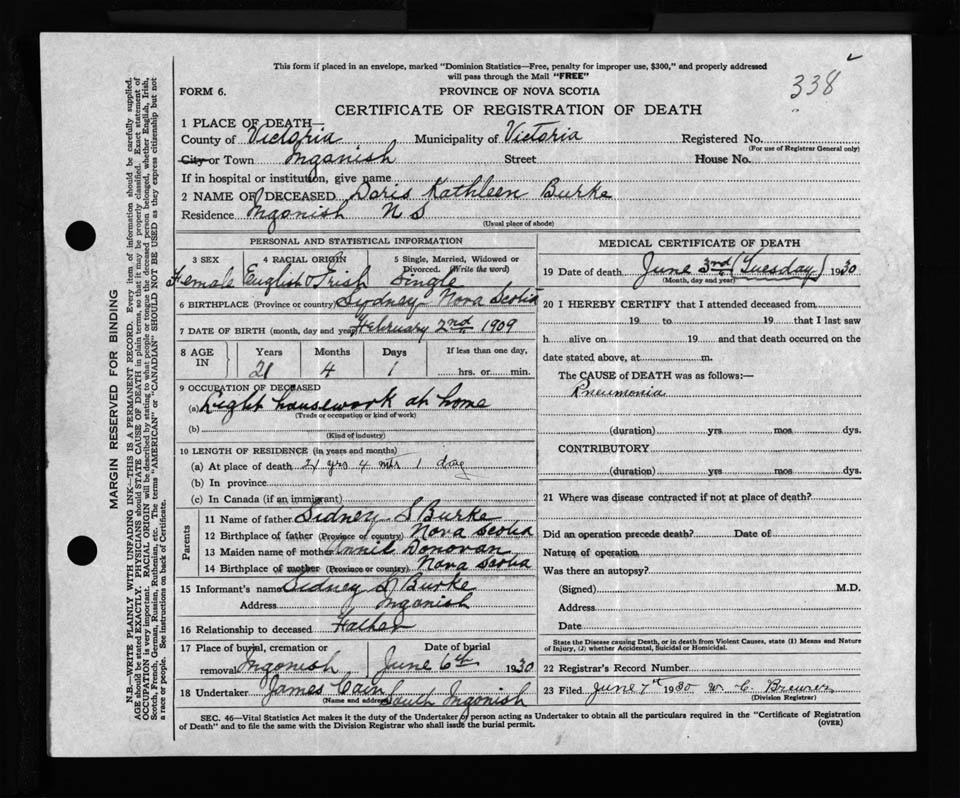 This form if placed in an envelope, marked "Dominion Statistics—Free, penalty for improper use, $300," and properly addressed
will pass through the Mail "FREE"
338
FORM 6.
PROVINCE OF NOVA SCOTIA
CERTIFICATE OF REGISTRATION OF DEATH
1 PLACE OF DEATH—
County of Victoria Municipality of Victoria Registered No.
(For use of Registrar General only)
City or Town Inganish Street House No.
If in hospital or institution, give name
2 NAME OF DECEASED Doris Kathleen Burke
Residence Ingonish N S
(Usual place of abode)
PERSONAL AND STATISTICAL INFORMATION
3 SEX 4 RACIAL ORIGIN 5 Single, Married, Widowed or
Divorced. (Write the word)
Female English & Irish Single
6 BIRTHPLACE (Province or country) Sydney Nova Scotia
7 DATE OF BIRTH (month, day and year) February 2nd 1909
8 AGE IN Years Months Days If less than one day,
21 4 1 hrs. or min.
9 OCCUPATION OF DECEASED
(a) Light housework at home
(Trade or occupation or kind of work)
(b)
(Kind of industry)
10 LENGTH OF RESIDENCE (in years and months)
(a) At place of death 21 yrs 4 mts 1 day
(b) In province
(c) In Canada (if an immigrant)
Parents
11 Name of father Sidney S Burke
12 Birthplace of father (Province or country) Nova Scotia
13 Maiden name of mother Annie Donovan
14 Birthplace of mother (Province or country) Nova Scotia
15 Informant's name Sidney S Burke
Address Inganish
16 Relationship to deceased Father
17 Place of burial, cremation or Date of burial
removal Ingonish June 6th 1930
18 Undertaker James Cain South Ingonish
(Name and address)
MEDICAL CERTIFICATE OF DEATH
19 Date of death June 3rd (Tuesday) 1930
(Month, day and year)
20 I HEREBY CERTIFY that I attended deceased from
19 to 19 that I last saw
h alive on 19 and that death occurred on the
date stated above, at m.
The CAUSE of DEATH was as follows:—
Pneumonia
(duration) yrs mos dys.
CONTRIBUTORY
(duration) yrs mos dys.
21 Where was disease contracted if not at place of death?
Did an operation precede death? Date of
Nature of operation
Was there an autopsy?
(Signed) M.D.
Address
Date
State the Disease causing Death, or in death from Violent Causes, state (1) Means and Nature
of Injury, (2) whether Accidental, Suicidal or Homicidal.
22 Registrar's Record Number
23 Filed June 7th 1930 W. C. Brewer
(Division Registrar)
SEC. 46—Vital Statistics Act makes it the duty of the Undertaker or person acting as Undertaker to obtain all the particulars required in the "Certificate of Registration
of Death" and to file the same with the Division Registrar who shall issue the burial permit.
(OVER)
MARGIN RESERVED FOR BINDING
N.B.—WRITE PLAINLY WITH UNFADING INK—THIS IS A PERMANENT RECORD. Every item of information should be carefully supplied.
AGE should be stated EXACTLY. PHYSICIANS should STATE CAUSE OF DEATH in plain terms, so that it may be properly classified. Exact statement of
OCCUPATION is very important. RACIAL ORIGIN will be described by stating to what people or tongue the deceased person belonged, whether English, Irish,
Scotch, French, German, Russian, Ruthenian, etc. The terms "AMERICAN" or "CANADIAN" SHOULD NOT BE USED as they express citizenship but not
a race or people. See instructions on back of Certificate.